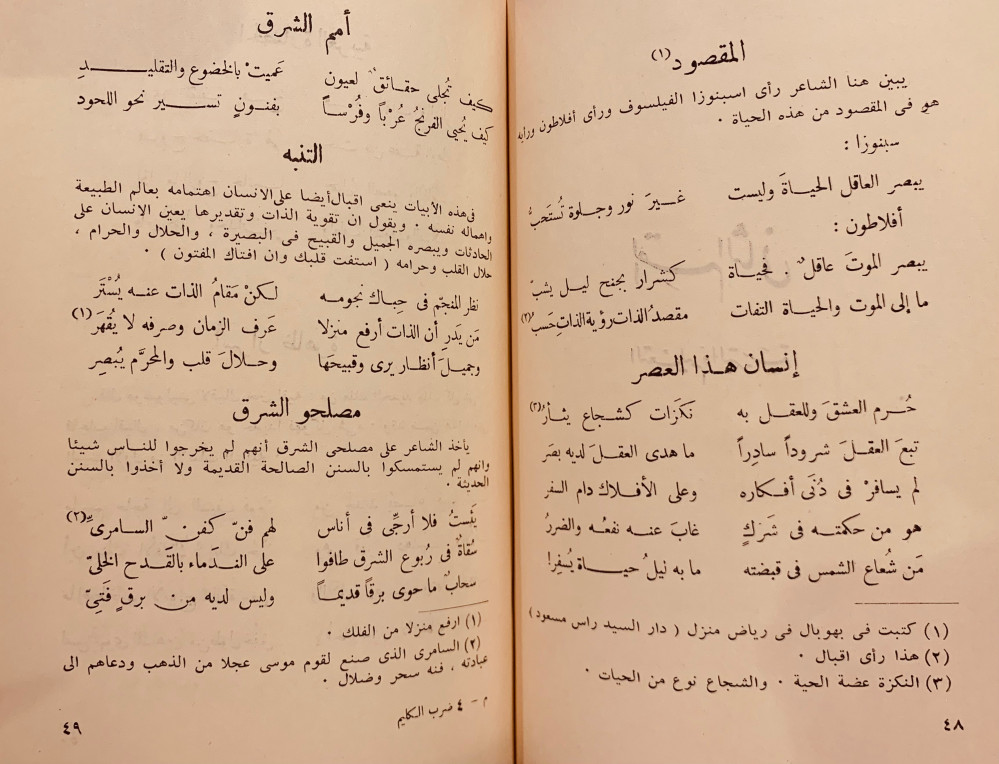 المقصود (١)
يبين هنا الشاعر رأى اسبنوزا الفيلسوف ورأى أفلاطون ورايه
هو فى المقصود من هذه الحياة ٠
سبنوزا :
يبصر العاقل الحياةَ وليست غــيرَ نور وجلوة تُستَحبُّ
أفلاطون :
يبصر الموتَ عاقلٌ . فحياة كشرار بجنح ليــل يشبّ
ما إلى الموت والحياة التفات مقصدُ الذات رؤية الذاتِ حَسبُ (٢)
إنسان هــذا العصر
حُــرم العشقَ وللعقــل به نَكزات كشجاع يثأرُ (٣)
تبعَ العقلَ شروداً سادِراً ما هدى العقلَ لديه بصَر
لم يسافرْ فى دُنَى أفــكاره وعلى الأفلاك دام السفر
هو من حكمتــه فى شَرَكٍ غابَ عنــه نفعُــه والضررُ
مَن شُعاع الشمس فى قبضته ما به ليلُ حيــاة يُسفِر!
(١) كتبت فى بهوبال فى رياض منزل ( دار السيد راس مسعود )
(٢) هذا رأى اقبال ٠
(٣) النكزة عضة الحية ٠ والشجاع نوع من الحيات ٠
٤٨
أمم الشرق
كيف تُجلى حقــائقٌ لعيون عَميتْ بالخضوع والتقليــــدِ
كيف يُحيى الفرنجُ عُرْباً وفُرْساً بفنــونٍ تســـير نحو اللحود
التنبه
فى هذه الأبيات ينعى اقبال أيضا على الانسان اهتمامه بعالم الطبيعة
واهماله نفسه ٠ ويقول ان تقوية الذات وتقديرها يعين الانسان على
الحادثات ويبصره الجميل والقبيح فى البصيرة ، والحلال والحرام ،
حلال القلب وحرامه ( استفت قلبك وان افتاك المفتون ) ٠
نظر المنجّم فى حِباك نجومــه لكنْ مَقامُ الذات عنــه يُسْتَر
مَن يَدر أن الذات أرفع منزلا عَرف الزمان وصرفه لا يُقهَر (١)
وجميلَ أنظــار يرى وقبيحَها وحــلالَ قلب والمحرَّم يُبصِر
مصلحو الشرق
يأخذ الشاعر على مصلحى الشرق أنهم لم يخرجوا للناس شيئا
وانهم لم يستمسكوا بالسنن الصالحة القديمة ولا أخذوا بالسنن
الحديثة ٠
يَئستُ فلا أرجِّى فى أناس لهم فنّ كفن السامرىِّ (٢)
سُقاةٌ فى رُبوع الشرق طافوا على النــدَماء بالقَــدح الخلىّ
سحابٌ ما حوى برقاً قديمــاً وليس لديه من برقٍ فَتىِّ
(١) ارفع منزلا من الفلك ٠
(٢) السامرى الذى صنع لقوم موسى عجلا من الذهب ودعاهم الى
عبادته ، فنه سحر وضلال ٠
م - ٤ ضرب الكليم
٤٩